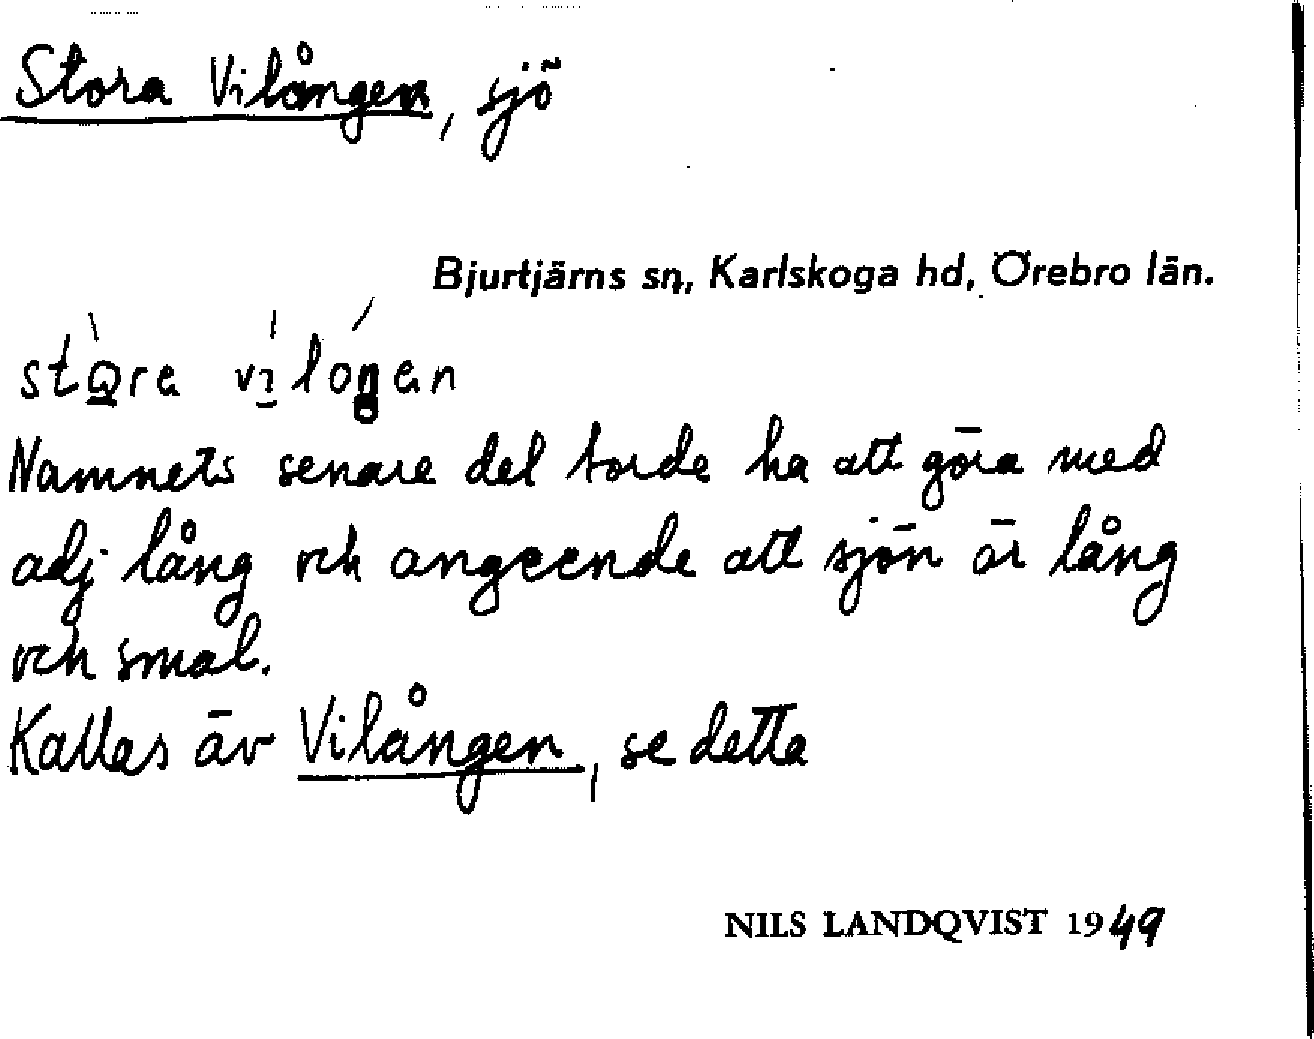 Stora Vilången, sjö
Bjurtjärns sn, Karlskoga hd, Örebro län.
Namnets senare del torde ha att göra med
adj lång och angeende att sjön är lång
och smal.
Kallas äv Vilången, se detta
NILS LANDQVIST 1949